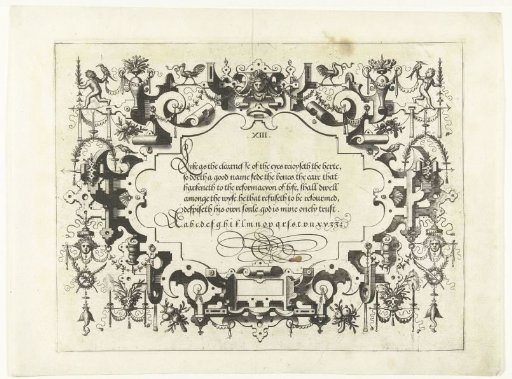 XIII.
Lyke as the clearnes se of the eyes reioyseth the herte,
so doeth a good name fede the bones the eare that
harkeneth to the reformacyon of lyfe, shall dwell
amonge the wyse he that refuseth to be refourmed,
despiseth his own soule god is mine onely trust.
a b c d e f g h i k l m n o p q r s t v u x y z